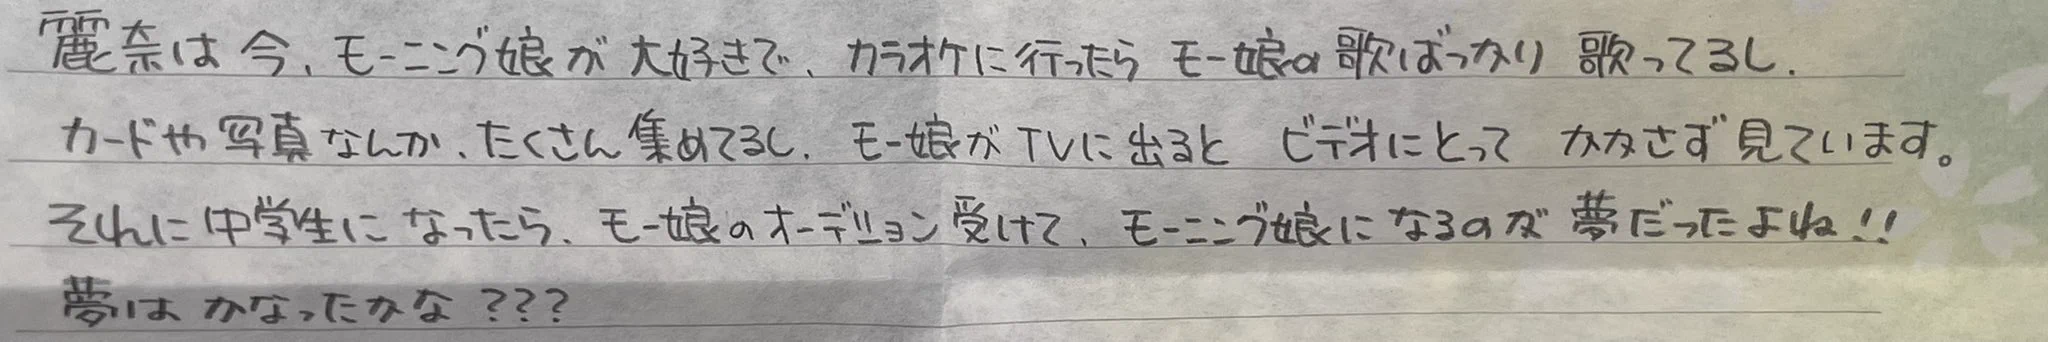 麗奈は今、モーニング娘が大好きで、カラオケに行ったらモー娘の歌ばっかり歌ってるし、
カードや写真なんか、たくさん集めてるし、モー娘がTVに出るとビデオにとってかかさず見ています。
それに中学生になったら、モー娘のオーデション受けて、モーニング娘になるのが夢だったよね!!
夢はかなったかな???